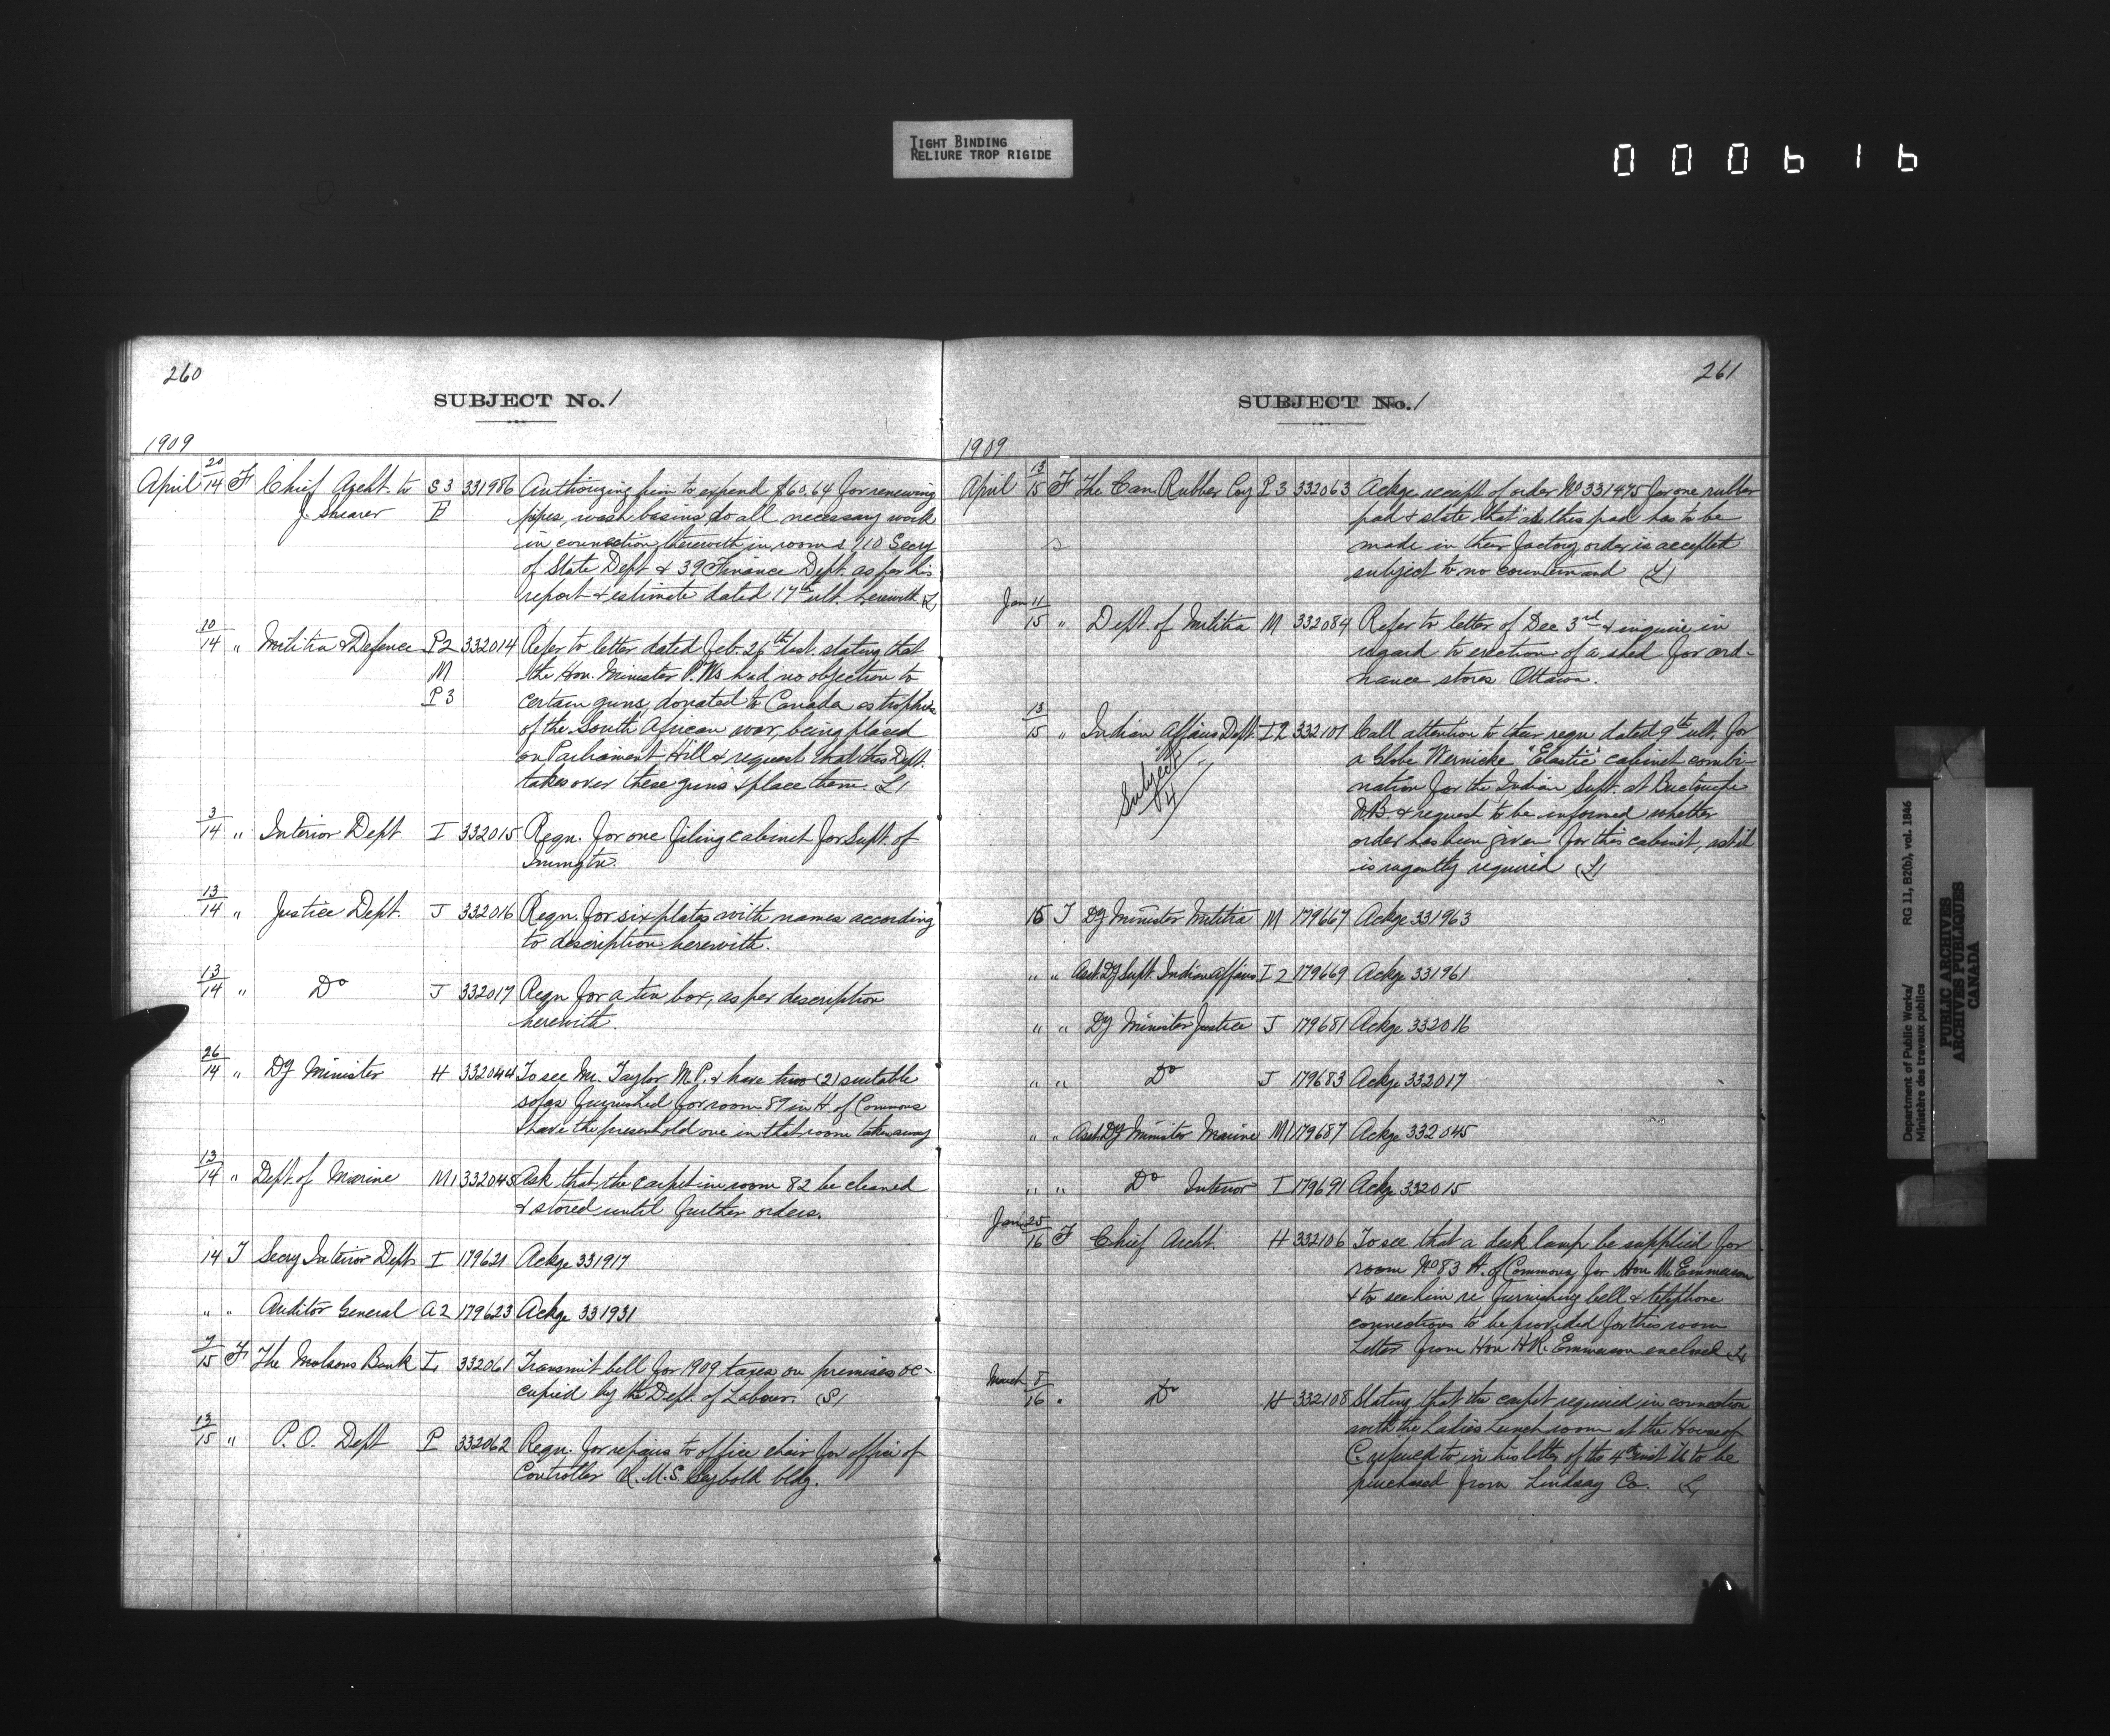 TIGHT BINDING
RELIURE TROP RIGIDE
000616
260
SUBJECT No. 1
1909
April 20/14 F Chief Archt. to S3 331986 Authorizing him to expend $60.64 for renewing
J. Shearer F pipes, wash basins, do all necessary work
in connection therewith in rooms 110 Secy
of State Dept & 39 Finance Dept. as per his
report & estimate dated 17th ult. herewith L
10/14 " Militia & Defence P2 332014 Refer to letter dated Feb. 26th last. stating that
M the Hon. Minister P.Ws had no objection to
P3 certain guns, donated to Canada as trophies
of the South African war, being placed
on Parliament Hill & request that this Dept.
takes over these guns & place them. L
3/14 " Interior Dept. I 332015 Reqn. for one filing cabinet for Supt. of
Immgtn.
13/14 " Justice Dept. J 332016 Reqn. for six plates with names according
to description herewith.
13/14 " Do J 332017 Reqn for a tin box, as per description
herewith.
26/14 " Dy Minister H 332044 To see Mr. Taylor M.P. & have two (2) suitable
sofas furnished for room 87 in H. of Commons
& have the present old one in that room taken away
13/14 " Dept of Marine M1 332045 Ask that the carpet in room 82 be cleaned
& stored until further orders.
14 T Secy Interior Dept I 179621 Ackge 331917
" " Auditor General A2 179623 Ackge 331931
7/15 F The Molsons Bank L 332061 Transmit bill for 1909 taxes on premises oc-
cupied by the Dept. of Labour. (S)
13/15 " P.O. Dept P 332062 Reqn. for repairs to office chair for office of
Controller R.M.S. Seybold bldg.
261
SUBJECT No. 1
1909
April 13/15 F The Can Rubber Coy P3 332063 Ackge receipt of order No 331475 for one rubber
pad & state that as this pad has to be
made in their factory order is accepted
subject to no countermand (L)
Jan 11/15 " Dept. of Militia M 332084 Refer to letter of Dec 3rd & inquire in
regard to erection of a shed for ord-
nance stores Ottawa.
13/15 " Indian Affairs Dept. I2 332101 Call attention to their reqn dated 9th ult. for
Subject 4
a Globe Wernicke "Elastic" cabinet combi-
nation for the Indian Supt. at Buctouche
N.B. & request to be informed whether
order has been given for this cabinet, as it
is urgently required (L)
15 T Dy Minister Militia M 179667 Ackge 331963
" " Asst. Dy Supt. Indian Affairs I2 179669 Ackge 331961
" " Dy Minister Justice J 179681 Ackge 332016
" " Do J 179683 Ackge 332017
" " Asst. Dy Minister Marine M1 179687 Ackge 332045
" " Do Interior I 179691 Ackge 332015
Jan 25/16 F Chief Archt. H 332106 To see that a desk lamp be supplied for
room No 83 H. of Commons, for Hon Mr Emmerson
& to see him re furnishing bell & telephone
connections to be provided for this room
Letter from Hon H.R. Emmerson enclosed L
March 8/16 " Do H 332108 Stating that the carpet required in connection
with the Ladies Lunch room at the House of
C. referred to in his letter of the 4th inst is to be
purchased from Lindsay Co. L
Department of Public Works/ RG 11, B2(b), vol. 1846
Ministère des travaux publics
PUBLIC ARCHIVES
ARCHIVES PUBLIQUES
CANADA